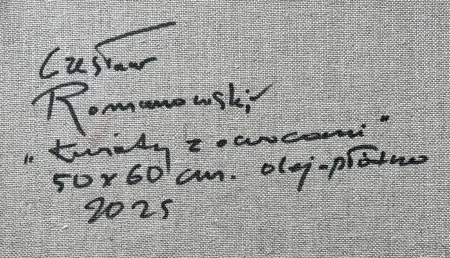 Czesław
Romanowski
„kwiaty z owocami"
50x60 cm. olej-płótno
2025